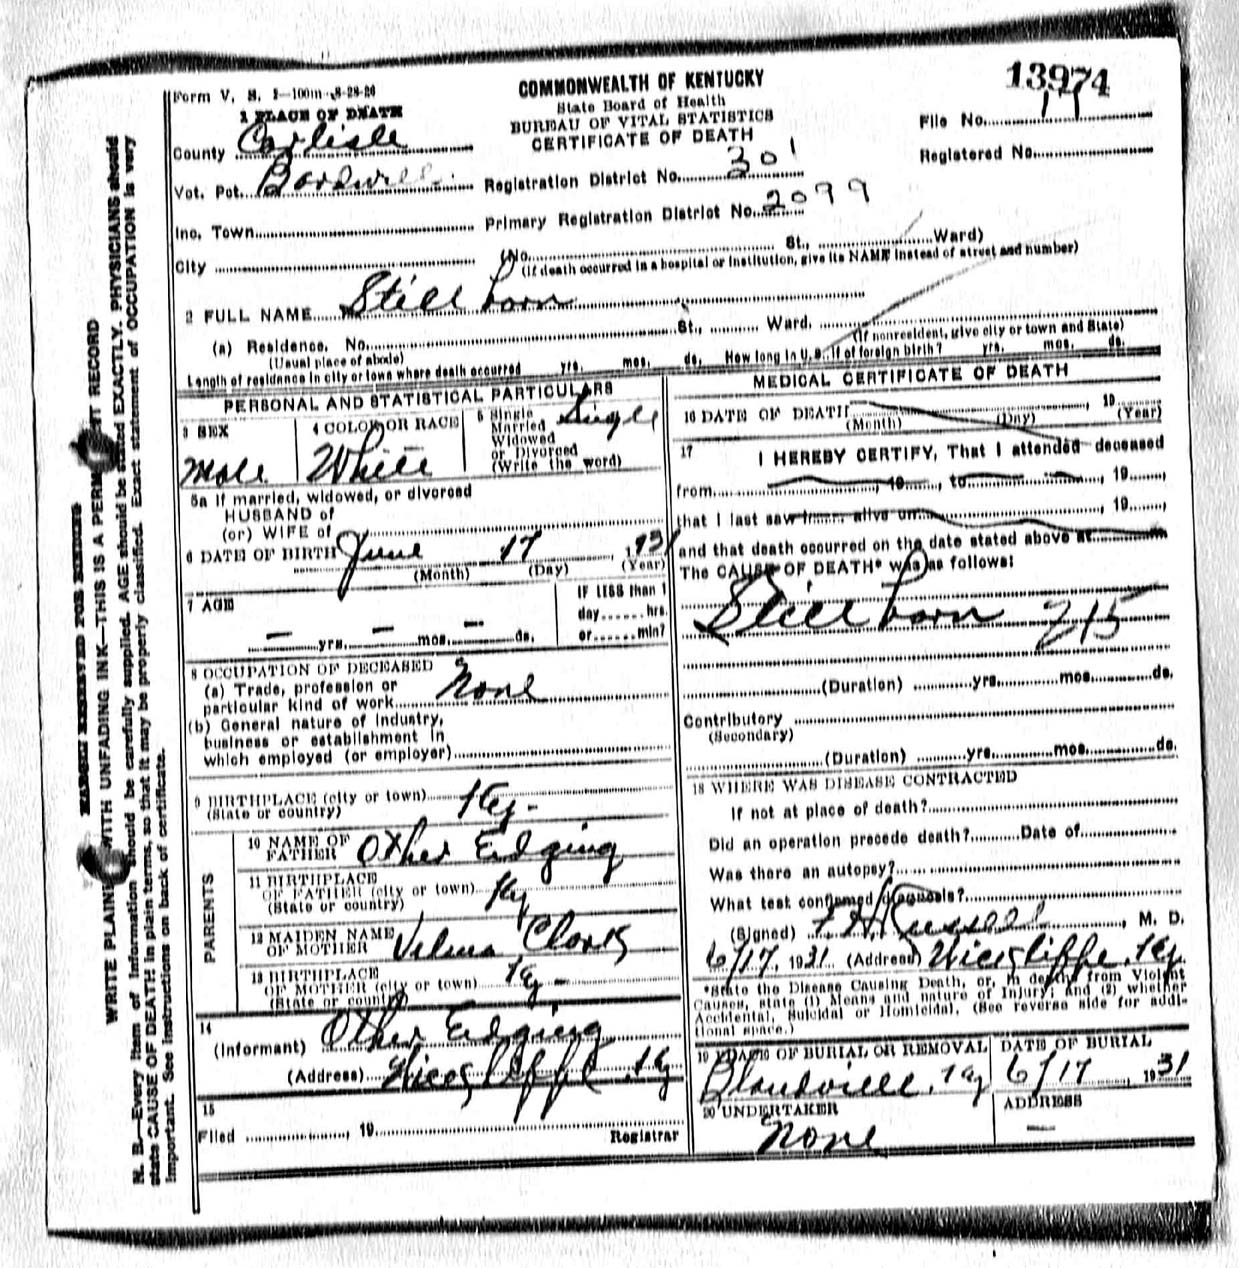 Form V. S. 1—100m—8-28-26
COMMONWEALTH OF KENTUCKY
State Board of Health
BUREAU OF VITAL STATISTICS
CERTIFICATE OF DEATH
13974
File No.
Registered No.
1 PLACE OF DEATH
County Carlisle
Vot. Pct. Bardwell
Registration District No. 301
Inc. Town
Primary Registration District No. 2099
City
(No. St., Ward)
(If death occurred in a hospital or institution, give its NAME instead of street and number)
2 FULL NAME Still born
(a) Residence. No. St., Ward.
(Usual place of abode)
(If nonresident, give city or town and State)
Length of residence in city or town where death occurred yrs. mos. ds. How long in U. S., if of foreign birth? yrs. mos. ds.
PERSONAL AND STATISTICAL PARTICULARS
3 SEX
Male
4 COLOR OR RACE
White
5 Single
Married
Widowed
or Divorced
(Write the word)
Single
5a If married, widowed, or divorced
HUSBAND of
(or) WIFE of
6 DATE OF BIRTH June 17, 1931
(Month) (Day) (Year)
7 AGE
— yrs. — mos. — ds.
IF LESS than 1
day hrs.
or min?
8 OCCUPATION OF DECEASED
(a) Trade, profession or
particular kind of work None
(b) General nature of industry,
business or establishment in
which employed (or employer)
9 BIRTHPLACE (city or town) Ky-
(State or country)
PARENTS
10 NAME OF
FATHER Other Edging
11 BIRTHPLACE
OF FATHER (city or town) Ky
(State or country)
12 MAIDEN NAME
OF MOTHER Velma Clark
13 BIRTHPLACE
OF MOTHER (city or town) Ky-
(State or country)
14
(Informant) Other Edging
(Address) Wickliffe, Ky
15
Filed , 19 Registrar
MEDICAL CERTIFICATE OF DEATH
16 DATE OF DEATH , 19
(Month) (Day) (Year)
17
I HEREBY CERTIFY, That I attended deceased
from , 19 , to , 19 ,
that I last saw alive on , 19 ,
and that death occurred on the date stated above at
The CAUSE OF DEATH* was as follows:
Still born 215
(Duration) yrs. mos. ds.
Contributory
(Secondary)
(Duration) yrs. mos. ds.
18 WHERE WAS DISEASE CONTRACTED
If not at place of death?
Did an operation precede death? Date of
Was there an autopsy?
What test confirmed diagnosis?
(Signed) Russell, M. D.
6/17, 1931 (Address) Wickliffe, Ky.
*State the Disease Causing Death, or, in deaths from Violent
Causes, state (1) Means and nature of Injury; and (2) whether
Accidental, Suicidal or Homicidal. (See reverse side for addi-
tional space.)
19 PLACE OF BURIAL OR REMOVAL
Blandville, Ky
DATE OF BURIAL
6/17, 1931
20 UNDERTAKER
None
ADDRESS
—
MARGIN RESERVED FOR BINDING
WRITE PLAINLY WITH UNFADING INK—THIS IS A PERMANENT RECORD
N. B.—Every item of information should be carefully supplied. AGE should be stated EXACTLY. PHYSICIANS should
state CAUSE OF DEATH in plain terms, so that it may be properly classified. Exact statement of OCCUPATION is very
important. See instructions on back of certificate.